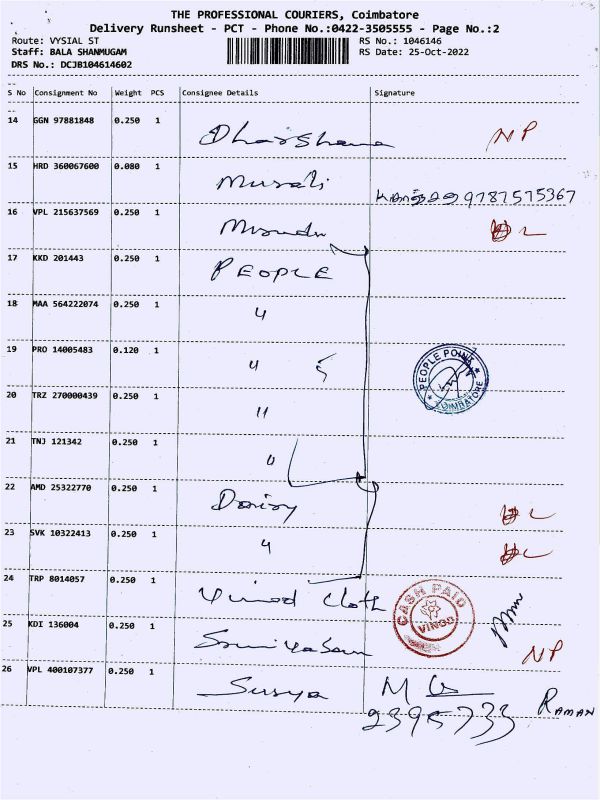 THE PROFESSIONAL COURIERS, Coimbatore
Delivery Runsheet - PCT - Phone No.:0422-3505555 - Page No.:2
Route: VYSIAL ST RS No.: 1046146
Staff: BALA SHANMUGAM RS Date: 25-Oct-2022
DRS No.: DCJB104614602
S No Consignment No Weight PCS Consignee Details Signature
14 GGN 97881848 0.250 1 Dharshana NP
15 HRD 360067600 0.080 1 Murali 9787575367
16 VPL 215637569 0.250 1
17 KKD 201443 0.250 1 PEOPLE
18 MAA 564222074 0.250 1 "
19 PRO 14005483 0.120 1 " 5
PEOPLE POINT
COIMBATORE
20 TRZ 270000439 0.250 1 "
21 TNJ 121342 0.250 1 "
22 AMD 25322770 0.250 1 Daisy
23 SVK 10322413 0.250 1 "
24 TRP 8014057 0.250 1 Vinod Cloth
CASH PAID
VINOD
25 KDI 136004 0.250 1 NP
26 VPL 400107377 0.250 1 Surya RAMAN
2395733